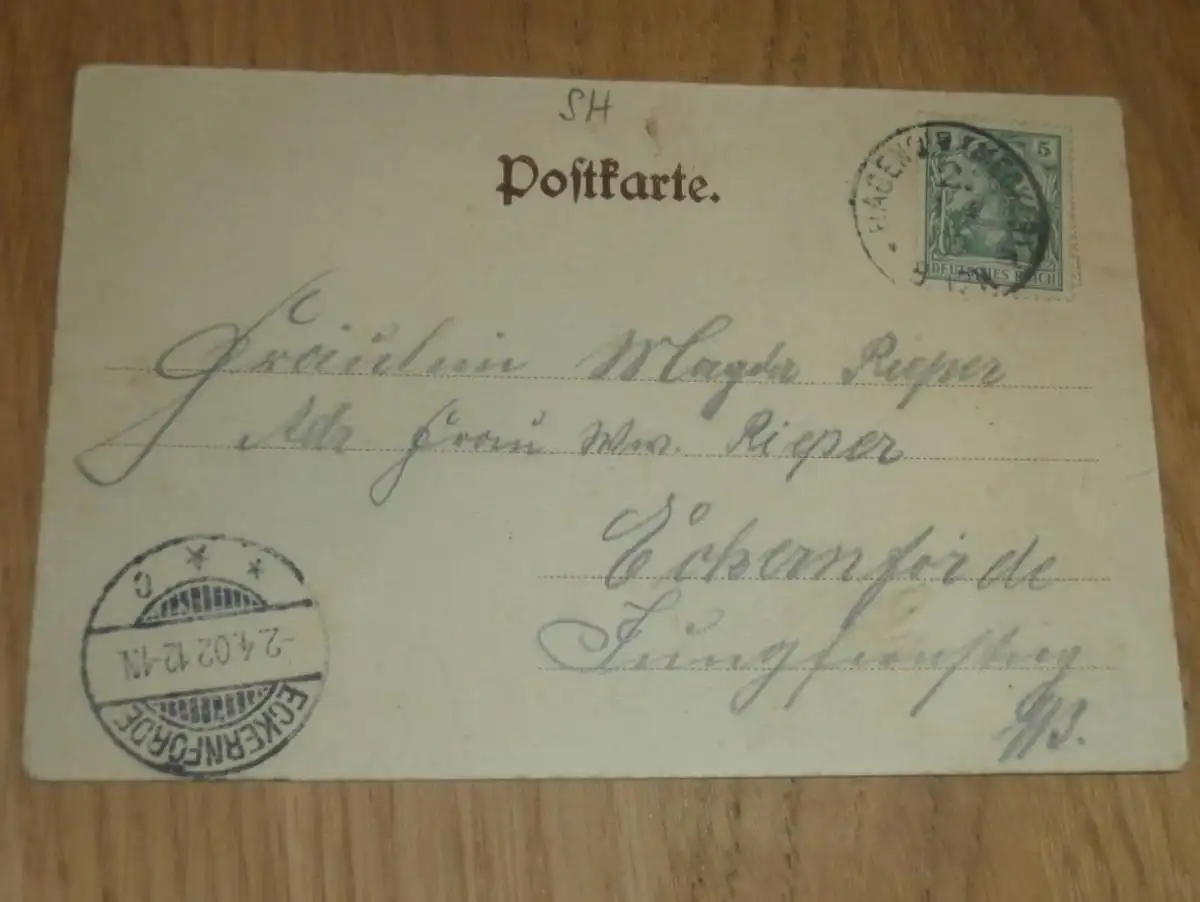 SH
Postkarte.
5
DEUTSCHES REICH
Fräulein Magda Rieper
Adr Frau Ww. Rieper
Eckernförde
Jungfernstieg
C
-2.4.02.12-1N
ECKERNFÖRDE